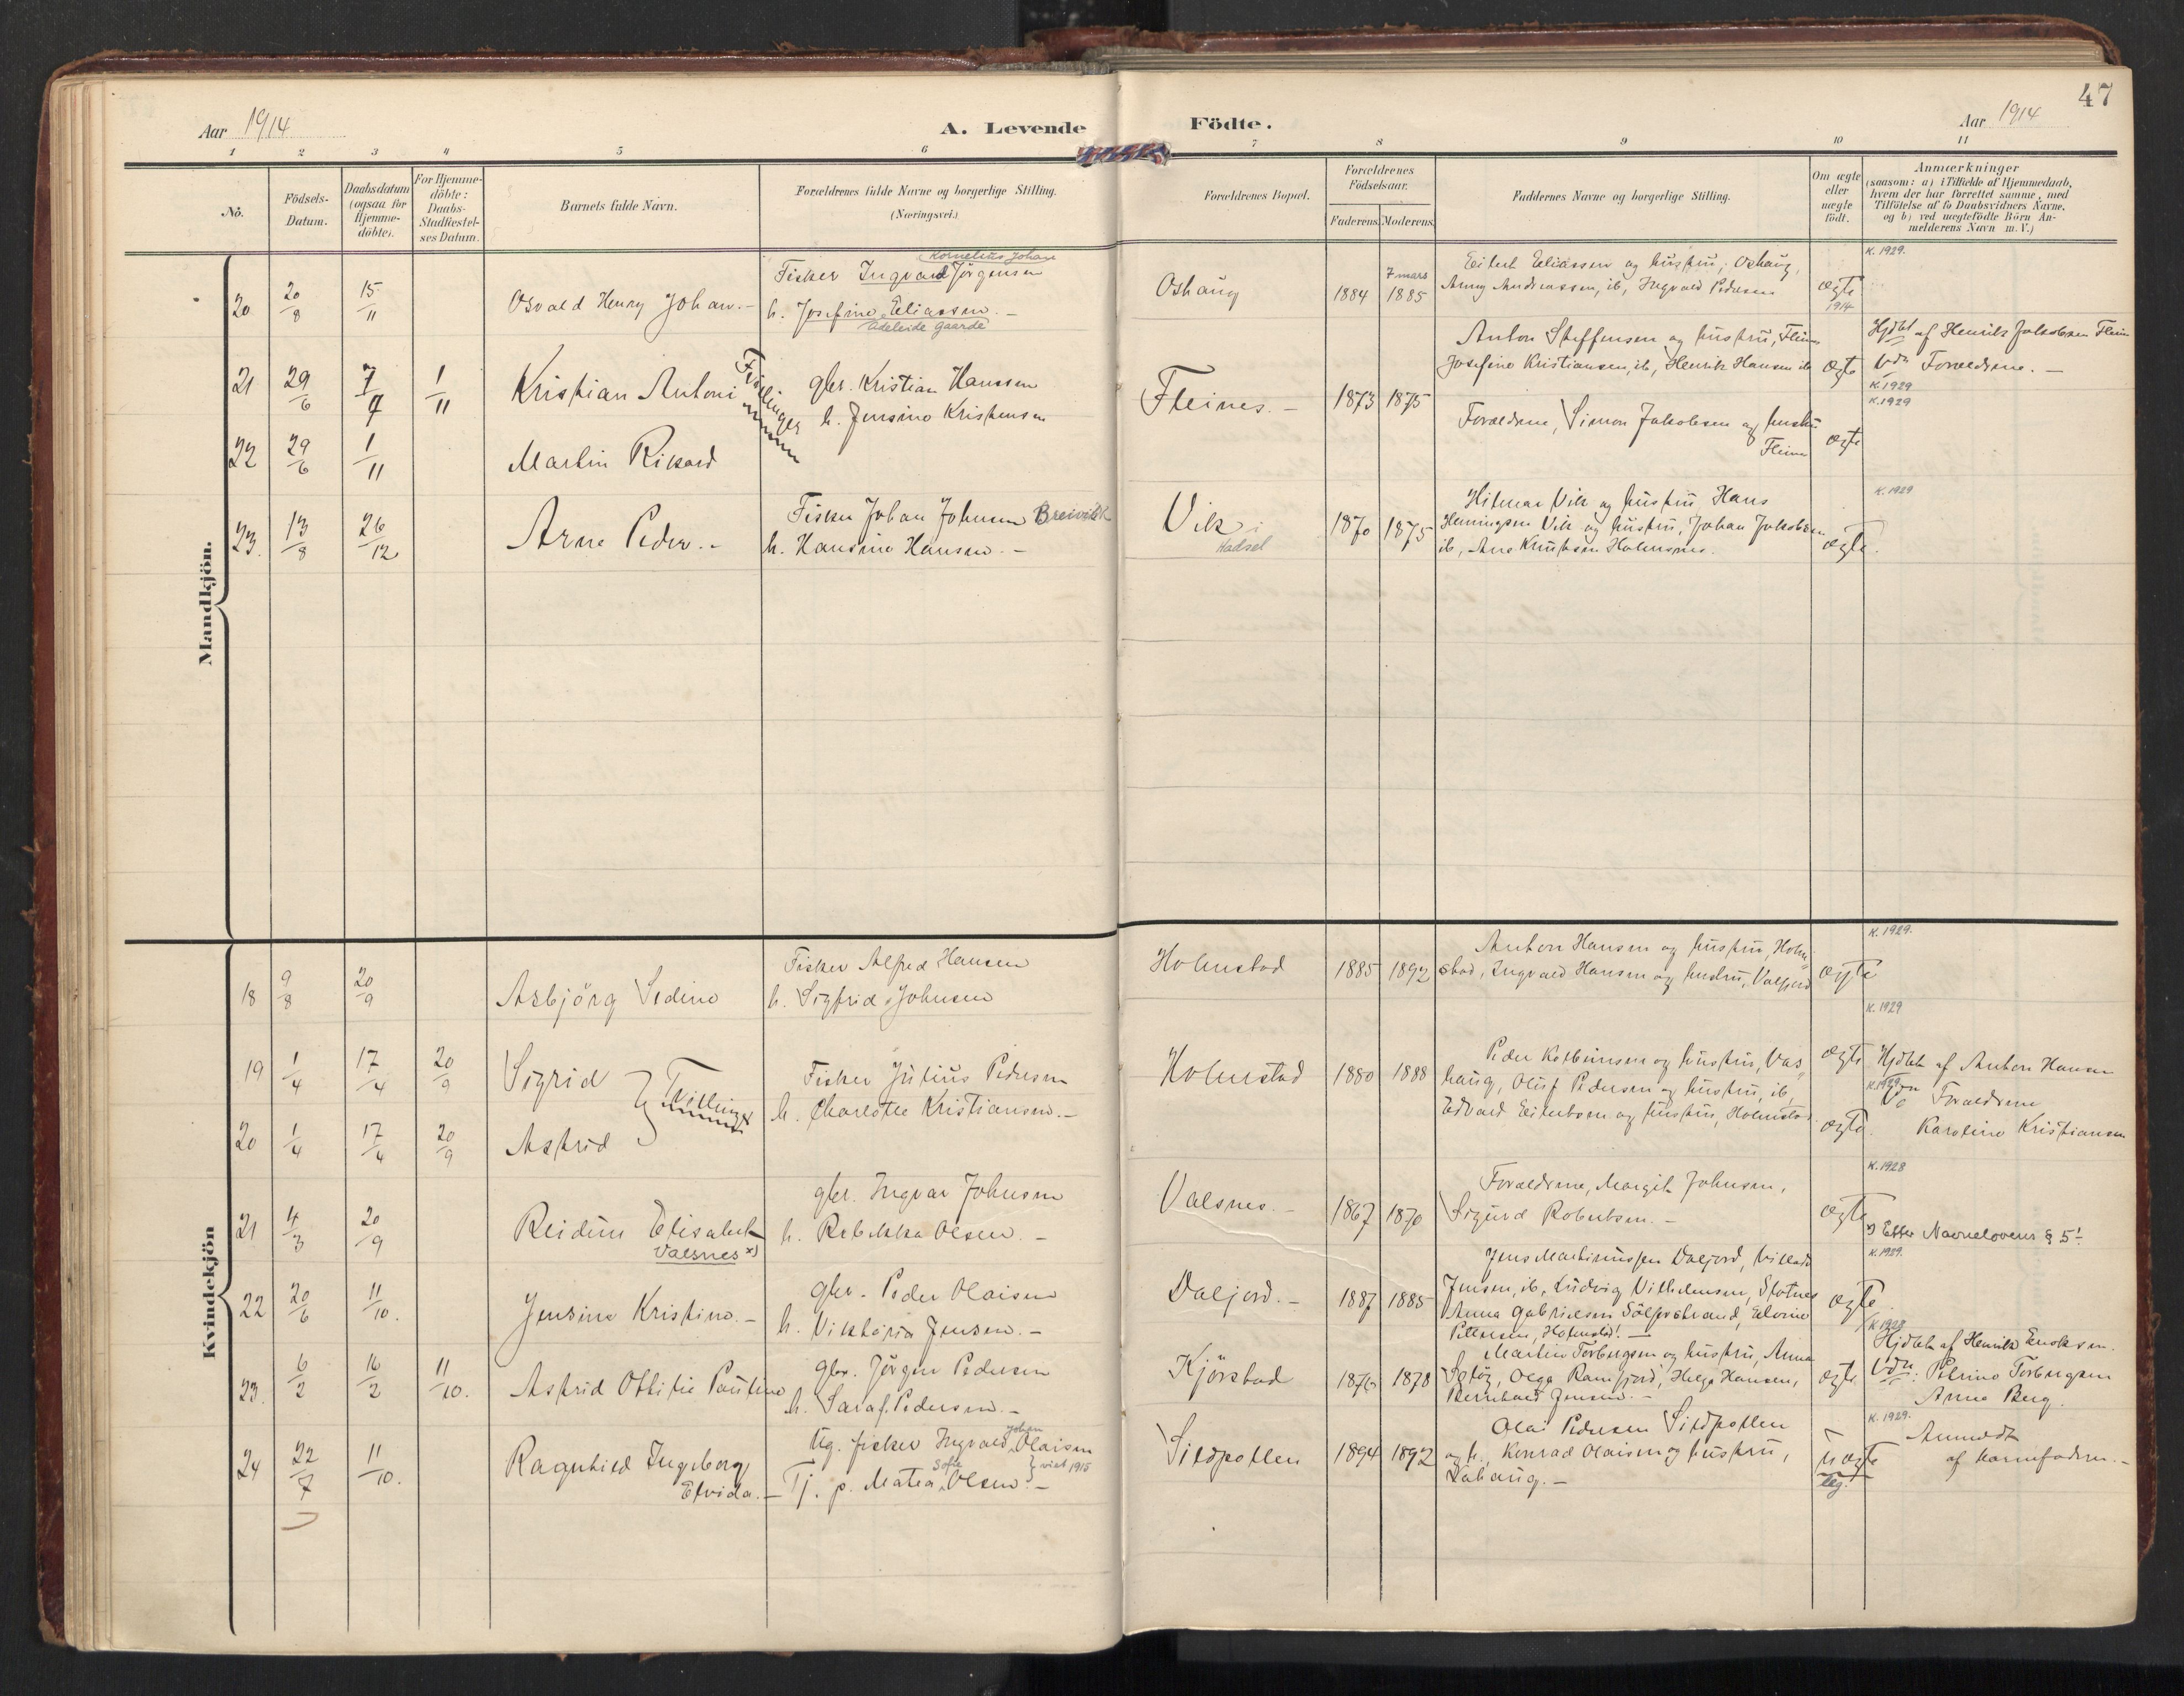 47
Aar 1914
A. Levende Födte.
Aar 1914
1 2 3 4 5 6 7 8 9 10 11
No.
Födsels-Datum.
Daabsdatum (ogsaa for Hjemme-döbte).
For Hjemme-döbte: Daabs-Stadfæstel-ses Datum.
Barnets fulde Navn.
Forældrenes fulde Navne og borgerlige Stilling. (Næringsvei.)
Forældrenes Bopæl.
Forældrenes Födselsaar.
Faderens. Moderens.
Faddernes Navne og borgerlige Stilling.
Om ægte eller uægte født.
Anmærkninger
(saasom: a) i Tilfælde af Hjemmedaab,
hvem der har forrettet samme, med
Tilföielse af to Daabsvidners Navne,
og b) ved uægtefödte Börn An-
melderens Navn m. V.)
Mandkjön.
20 20/8 15/11 Osvald Henry Johan.-
Kornelius Johan
Fisker Ingvard Jörgensen
h. Josefine Eliassen.-
Adeleide Gaarde
Oshaug 1884 7 mars 1885
Eilert Eliassen og hustru, Oshaug,
Anny Andreassen, ib, Ingvald Pedersen
ægte 1914
K. 1929.
21 29/6 7/7 1/11 Kristian Antoni
Tvillinger
gbr. Kristian Hanssen
h. Jensine Kristensen
Fleines.- 1873 1875
Anton Steffensen og hustru, Fleines
Josefine Kristiansen, ib, Henrik Hansen ib
ægte
Hjdbt af Henrik Jakobsen Fleines
Vdn Forældrene.-
K. 1929
K. 1929
22 29/6 1/11 Martin Rikard
Forældrene, Simon Jakobsen og hustru
Fleines
ægte
23. 13/8 26/12 Arne Peder.-
Fisker Johan Johnsen Breivikk
h. Hansine Hansen.-
Vik i
Hadsel
1870 1875
Hilmar Vik og hustru Hans
Henningsen Vik og hustru, Johan Jakobsen
ib, Ane Knutsen Holmsnes.
ægte.
K. 1929
Kvindekjön
18 9/8 20/9 Asbjörg Sedine
Fisker Alfred Hansen
h. Sigfrid Johnsen
Holmstad 1885 1892
Anton Hansen og hustru, Holm
stad, Ingvald Hansen og hustru, Valfjord
ægte
K. 1929.
K. 1929
19 1/4 17/4 20/9 Sigrid
Tvillinger
Fisker Julius Pedersen
h. Charlotte Kristiansen.-
Holmstad 1880 1888
Peder Kolbeinsen og hustru, Vas
haug, Oluf Pedersen og hustru, ib,
Edvard Eilertsen og hustru, Holmstad
ægte
Hjdbt af Anton Hansen
K. 1929.
Vdn Forældrene
20 1/4 17/4 20/9 Astrid
ægte.
Karoline Kristiansen
21 4/3 20/9 Reidun Elisabet
Valsnes x)
gbr. Ingvar Johnsen
h. Rebekka Olsen.-
Valsnes.- 1867 1870
Forældrene, Margit Johnsen,
Sigurd Robertsen.-
ægte
K. 1928
x) Efter Navnelovens § 5!
22 20/6 11/10. Jensine Kristine.-
gbr. Peder Olaisen
h. Viktoria Jensen.-
Daljord.- 1887 1885
Jens Martinussen Daljord, Villads
Jensen, ib, Ludvig Vilhelmsen, Slotnes
Anna Gabrielsen Sölferstrand, Edvine
Pettersen, Holmstad!-
ægte
K. 1929.
23. 6/2 16/2 11/10. Astrid Ottilie Pauline
gbr. Jörgen Pedersen
h. Sara f. Pedersen.-
Kjörstad 1876 1878
Martin Torbergsen og hustru, Anna
Olga Ramfjord, Helga Hansen,
Bernhard Jensen.-
ægte
K 1928
Hjdbt af Henrik Enoksen.
Vdn: Petrine Torbergsen
Anna Berg.
24 22/7 11/10. Ragnhild Ingeborg
Elvida.-
Ug. fisker Ingvald Johan Olaisen
Tj. p. Matea Sofie Olsen.-
} viet 1915
Sildpollen 1894 1892
Olai Pedersen Sildpollen
og h., Konrad Olaisen og hustru,
uægte
K. 1929.
Anmeldt
af barnefaderen.-